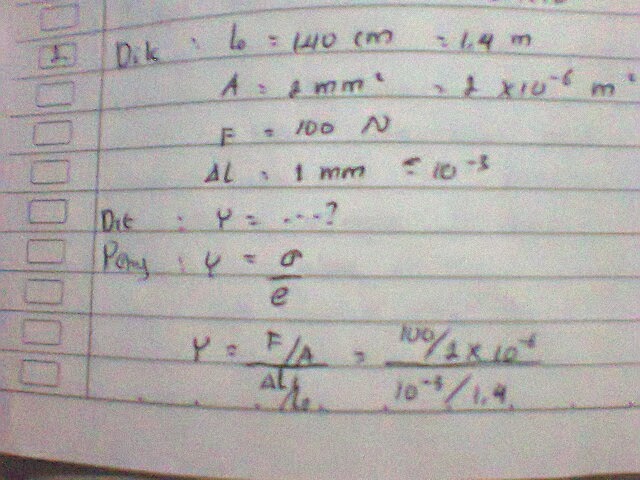 2. Dik : l₀ = 140 cm = 1.4 m
A = 2 mm² = 2 × 10⁻⁶ m²
F = 100 N
Δl = 1 mm = 10⁻³
Dit : Y = ...?
Peny : Y = σ/e
Y = (F/A)/(Δl/l₀) = (100/2 × 10⁻⁶)/(10⁻³/1.4)